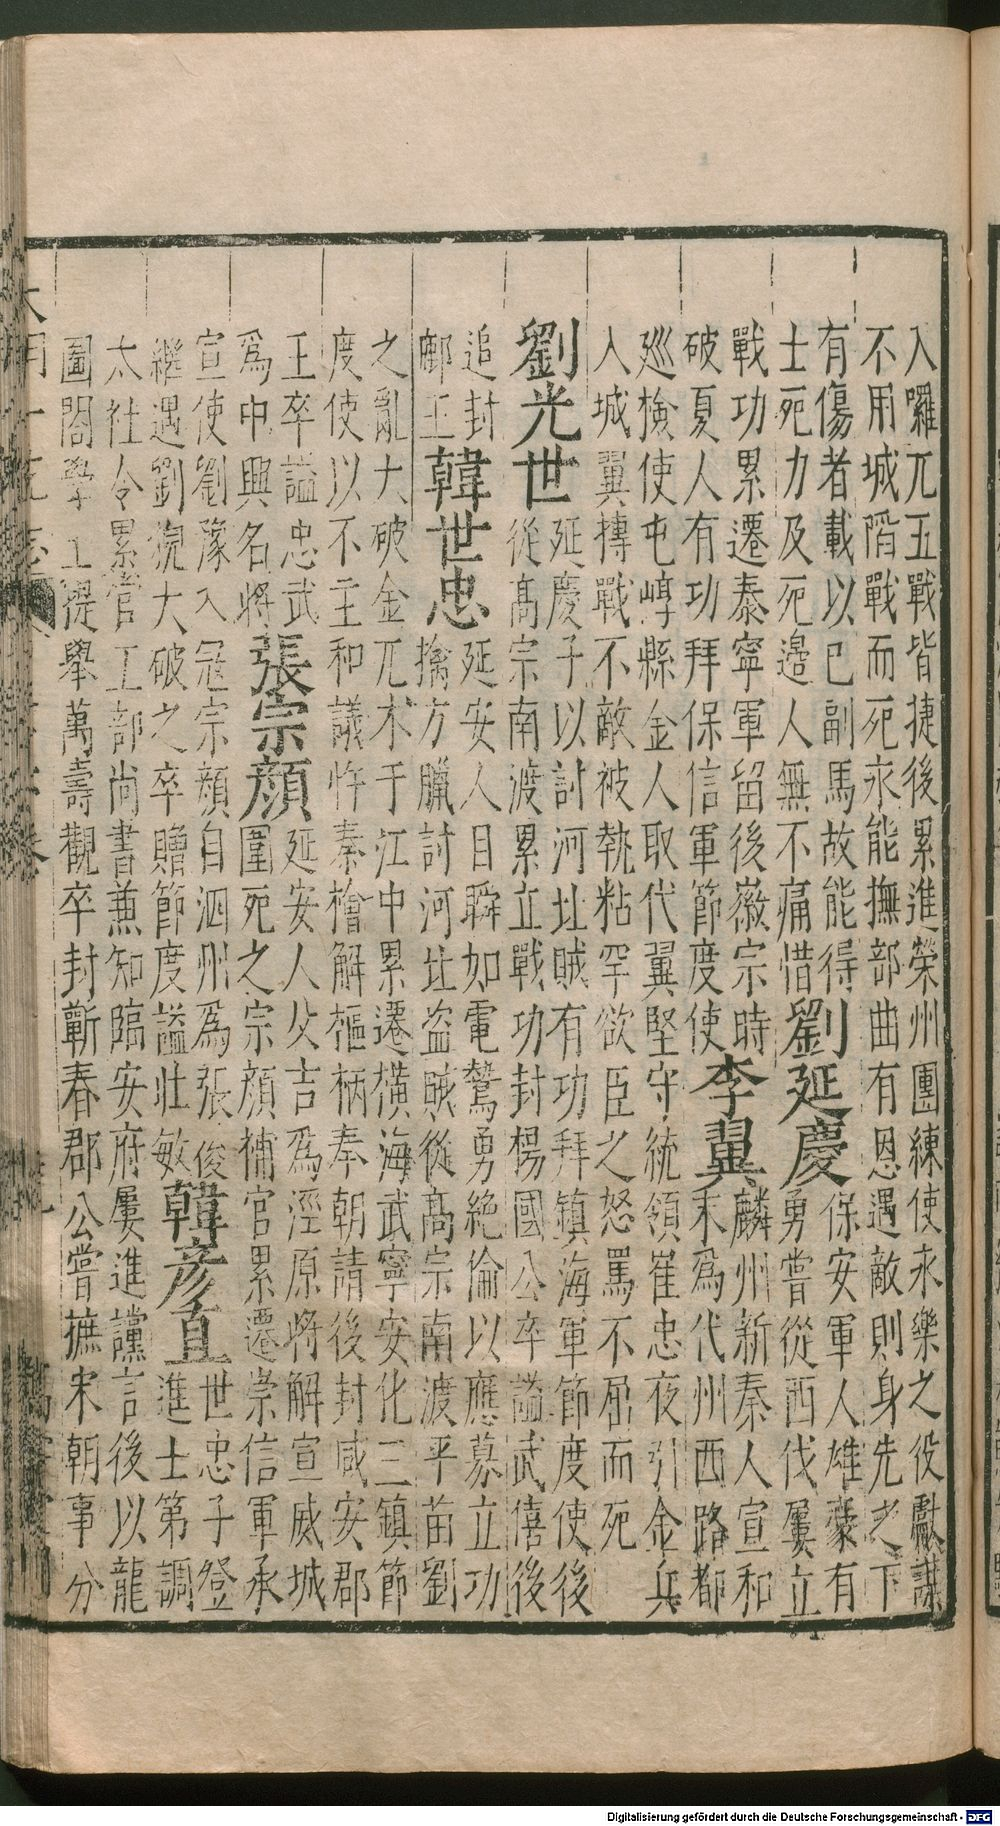 入囉兀五戰皆捷後累進榮州團練使永樂之役獻謀
不用城陷戰而死永能撫部曲有恩遇敵則身先之下
有傷者載以已副馬故能得
士死力及死邊人無不痛惜
劉延慶
保安軍人雄豪有
勇嘗從西伐屢立
戰功累遷泰寧軍留後徽宗時
破夏人有功拜保信軍節度使
李翼
麟州新秦人宣和
末為代州西路都
巡檢使屯崞縣金人取代翼堅守統領崔忠夜引金兵
入城翼摶戰不敵被執粘罕欲臣之怒罵不屈而死
劉光世
延慶子以討河北賊有功拜鎮海軍節度使後
從高宗南渡累立戰功封楊國公卒謚武僖後
追封
鄜王
韓世忠
延安人目瞬如電驁勇絕倫以應募立功
擒方臘討河北盗賊從高宗南渡平苗劉
之亂大破金兀术于江中累遷橫海武寧安化三鎮節
度使以不主和議忤秦檜解樞柄奉朝請後封咸安郡
王卒謚忠武
為中興名將
張宗顏
延安人父吉為涇原將解宣威城
圍死之宗顏補官累遷崇信軍承
宣使劉豫入冦宗顏自泗州為張俊
繼遇劉猊大破之卒贈節度謚壯敏
韓彥直
世忠子登
進士第調
太社令累官工部尚書兼知臨安府屢進讜言後以龍
圖閣學士提舉萬壽觀卒封蘄春郡公嘗摭宋朝事分
大明一統志
Digitalisierung gefördert durch die Deutsche Forschungsgemeinschaft - DFG